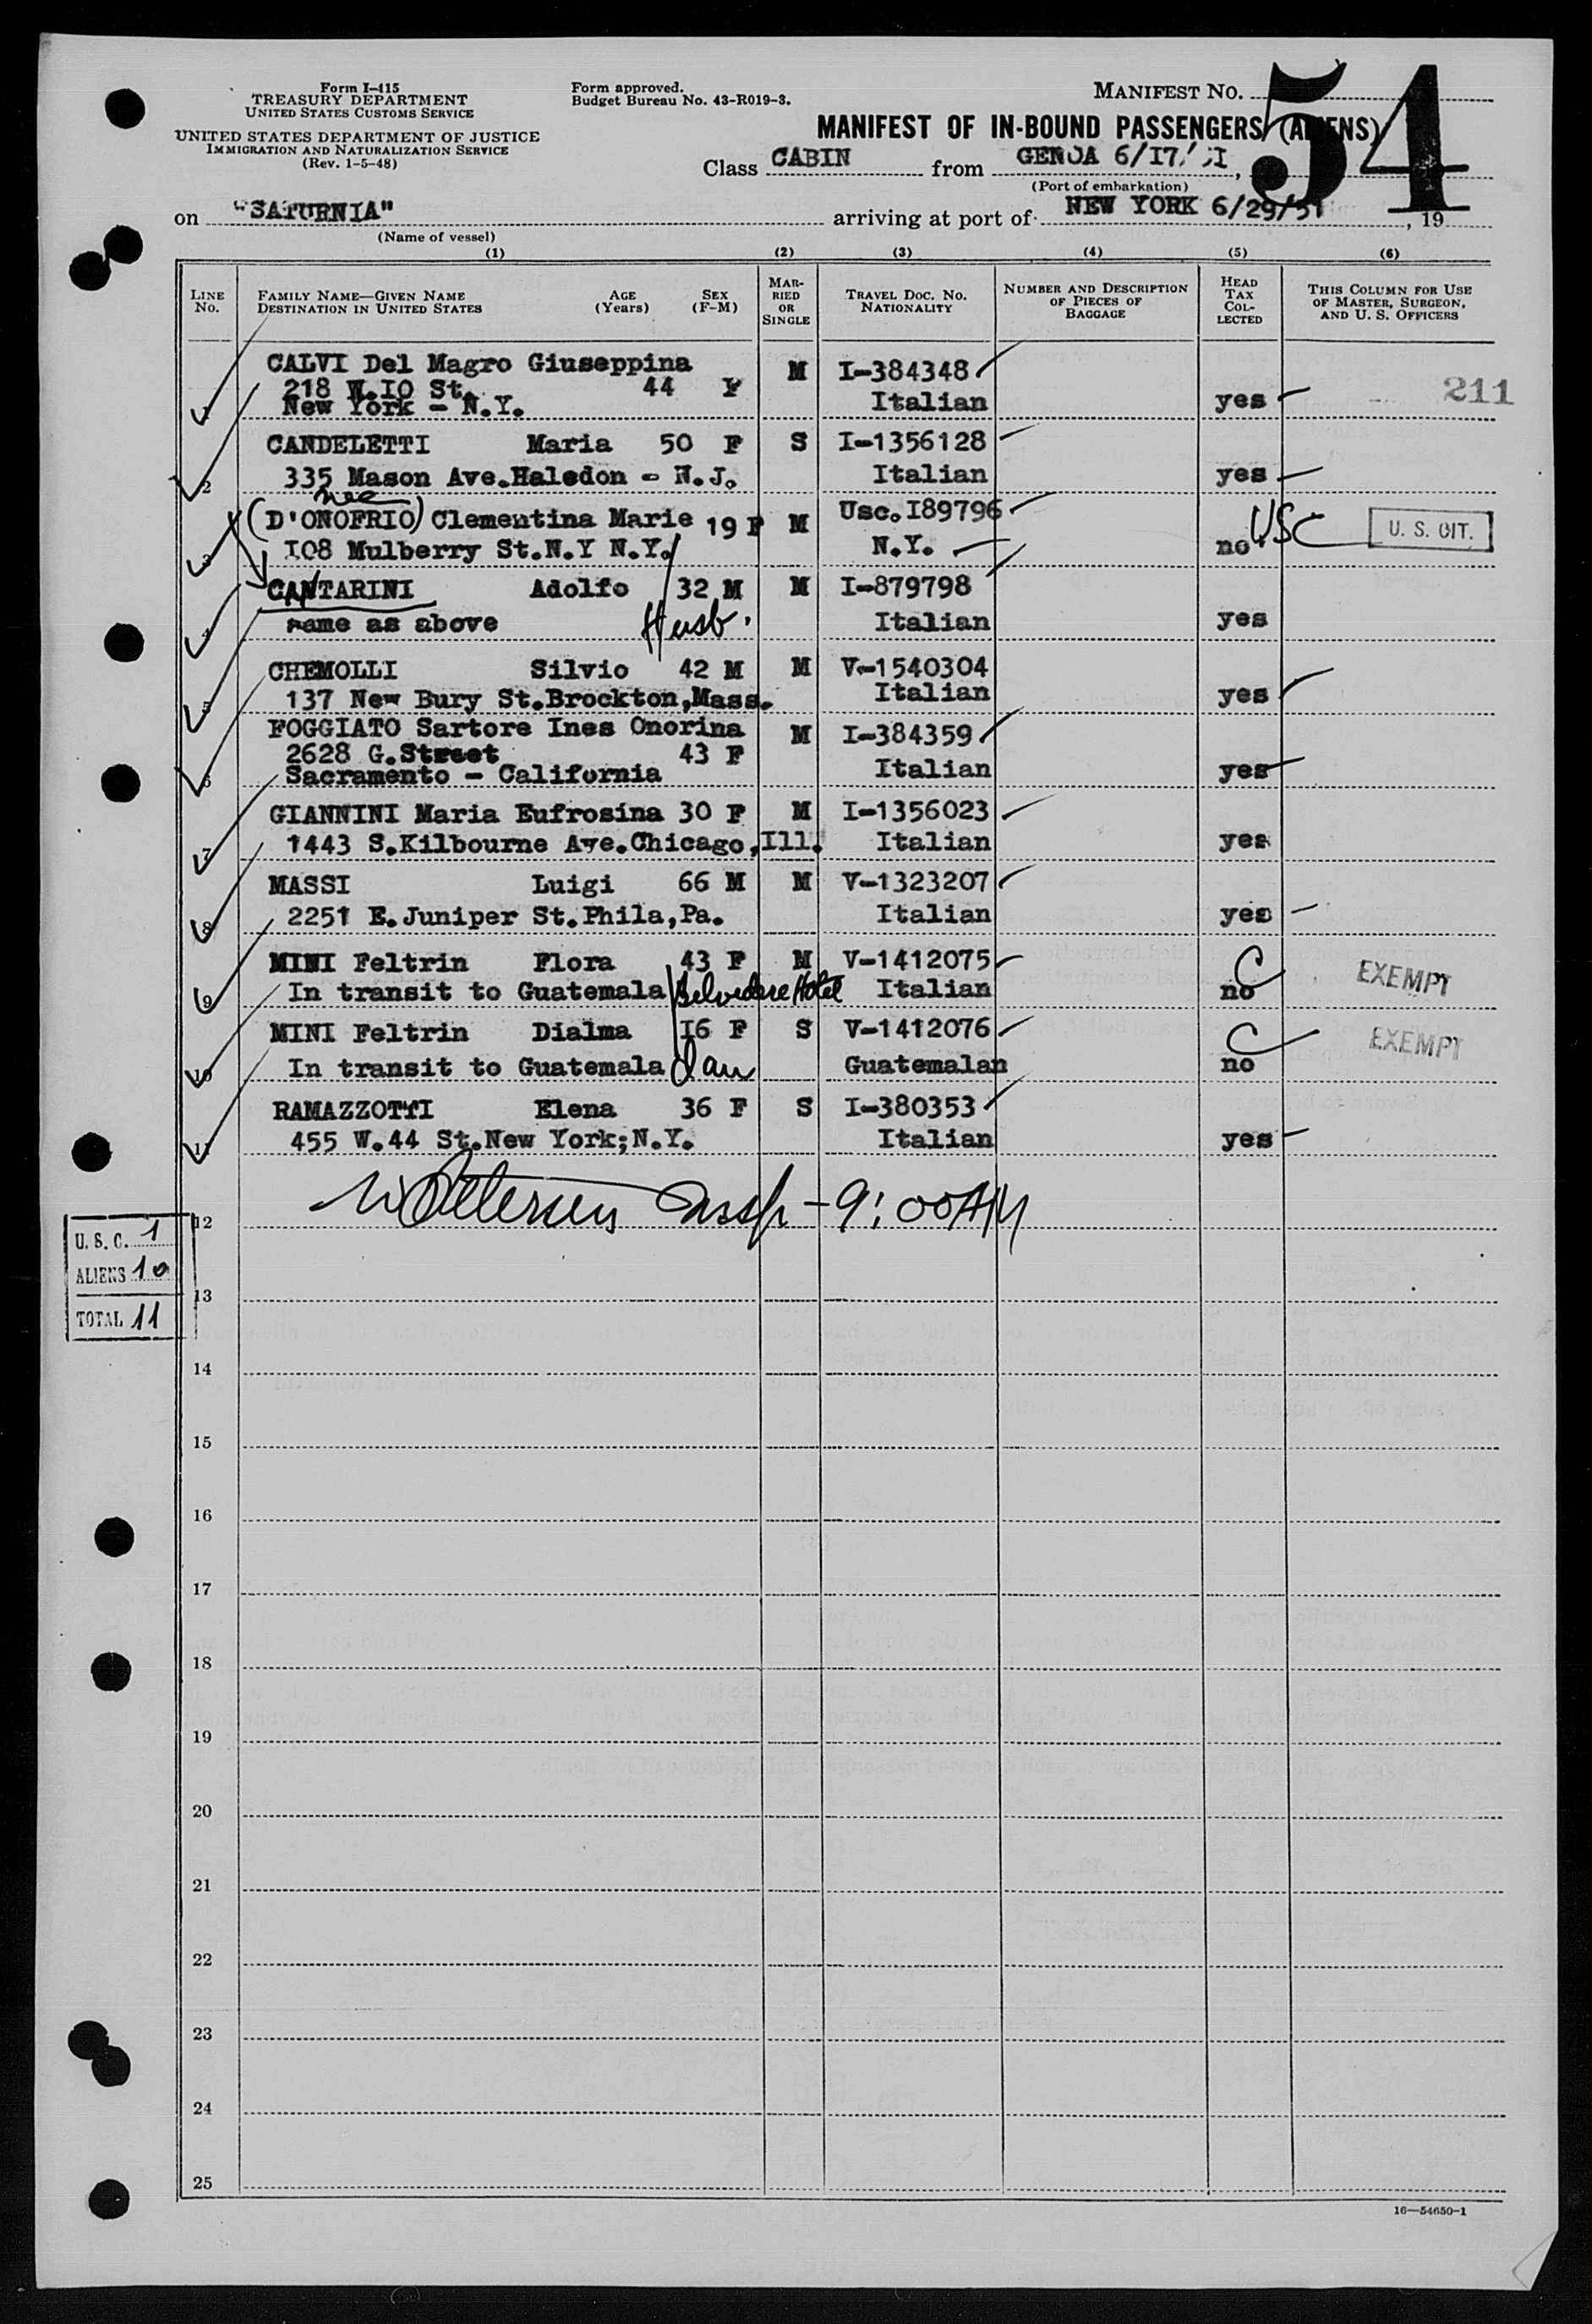 Form I-415
TREASURY DEPARTMENT
UNITED STATES CUSTOMS SERVICE
UNITED STATES DEPARTMENT OF JUSTICE
IMMIGRATION AND NATURALIZATION SERVICE
(Rev. 1-5-48)
Form approved.
Budget Bureau No. 43-R019-3.
MANIFEST NO. 54
MANIFEST OF IN-BOUND PASSENGERS (ALIENS)
Class CABIN from GENOA 6/I7/5I,
(Port of embarkation)
on "SATURNIA" arriving at port of NEW YORK 6/29/51, 19
(Name of vessel)
(1) (2) (3) (4) (5) (6)
LINE NO. FAMILY NAME—GIVEN NAME DESTINATION IN UNITED STATES AGE (Years) SEX (F-M) MARRIED OR SINGLE TRAVEL DOC. NO. NATIONALITY NUMBER AND DESCRIPTION OF PIECES OF BAGGAGE HEAD TAX COLLECTED THIS COLUMN FOR USE OF MASTER, SURGEON, AND U. S. OFFICERS
1 CALVI Del Magro Giuseppina M I-384348
218 W.IO St. 44 F
New York - N.Y. Italian yes 211
CANDELETTI Maria 50 F S I-1356128
2 335 Mason Ave.Haledon - N.J. Italian yes
nee
(D'ONOFRIO) Clementina Marie 19 F M Usc.I89796 USC U. S. CIT.
3 I08 Mulberry St.N.Y N.Y. N.Y. no
CANTARINI Adolfo 32 M M I-879798
4 same as above Husb. Italian yes
CHEMOLLI Silvio 42 M M V-1540304
5 137 New Bury St.Brockton,Mass. Italian yes
FOGGIATO Sartore Ines Onorina M I-384359
2628 G.Street 43 F
6 Sacramento - California Italian yes
GIANNINI Maria Eufrosina 30 F M I-1356023
7 1443 S.Kilbourne Ave.Chicago,Ill. Italian yes
MASSI Luigi 66 M M V-1323207
8 2251 E.Juniper St.Phila,Pa. Italian yes
MINI Feltrin Flora 43 F M V-1412075 C EXEMPT
9 In transit to Guatemala Belvedere Hotel Italian no
MINI Feltrin Dialma I6 F S V-1412076 C EXEMPT
10 In transit to Guatemala dau Guatemalan no
RAMAZZOTTI Elena 36 F S I-380353
11 455 W.44 St.New York;N.Y. Italian yes
Insp - 9:00 AM
12
U. S. C. 1
ALIENS 10
TOTAL 11
13
14
15
16
17
18
19
20
21
22
23
24
25
16—54650-1